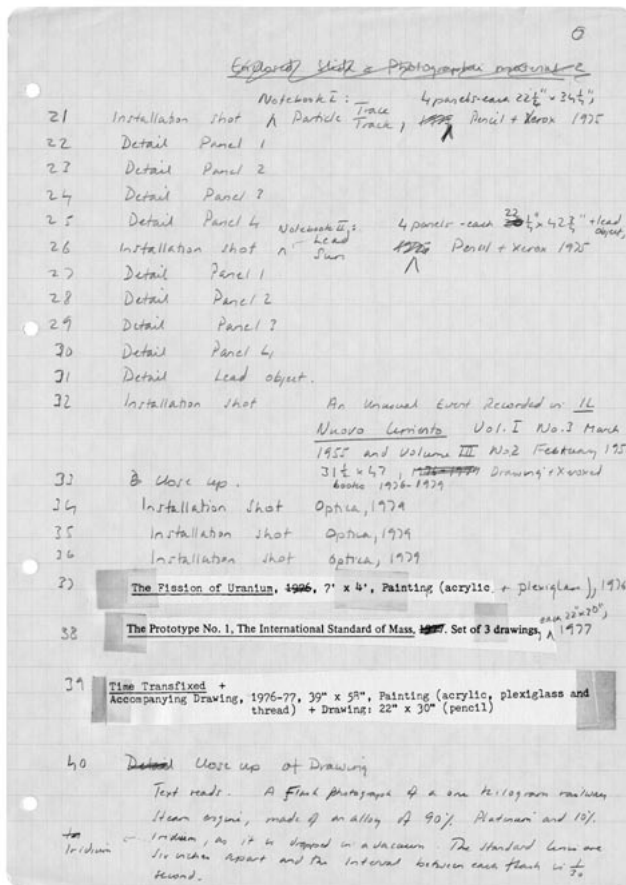 6
Photographic material 2
Notebook I : Trace 4 panels - each 22 1/2" x 34 1/4",
21 Installation shot ^ Particle Track, Pencil + Xerox 1975
22 Detail Panel 1
23 Detail Panel 2
24 Detail Panel 3
25 Detail Panel 4
Notebook II : 4 panels - each 22 1/4" x 42 3/4" + lead object,
26 Installation shot ^ Lead Sun Pencil + Xerox 1975
27 Detail Panel 1
28 Detail Panel 2
29 Detail Panel 3
30 Detail Panel 4
31 Detail Lead object.
32 Installation shot An Unusual Event Recorded in IL
Nuovo Cimento Vol. I No. 3 March
1955 and Volume III No 2 February 195
31 1/2 x 47, Drawing + Xeroxed
33 Close up. books 1976-1979
34 Installation Shot Optica, 1979
35 Installation shot Optica, 1979
36 Installation shot Optica, 1979
37 The Fission of Uranium, 1976, 7' x 4', Painting (acrylic + plexiglass), 1976
each 22" x 30",
38 The Prototype No. 1, The International Standard of Mass, 1977. Set of 3 drawings, ^ 1977
39 Time Transfixed +
Accompanying Drawing, 1976-77, 39" x 58", Painting (acrylic, plexiglass and
thread) + Drawing: 22" x 30" (pencil)
40 Detail Close up of Drawing
Text reads. A Flash photograph of a one kilogram railway
steam engine, made of an alloy of 90% Platinum and 10%
Iridium Iridium, as it is dropped in a vacuum. The standard lines are
six inches apart and the interval between each flash is 1/30
second.